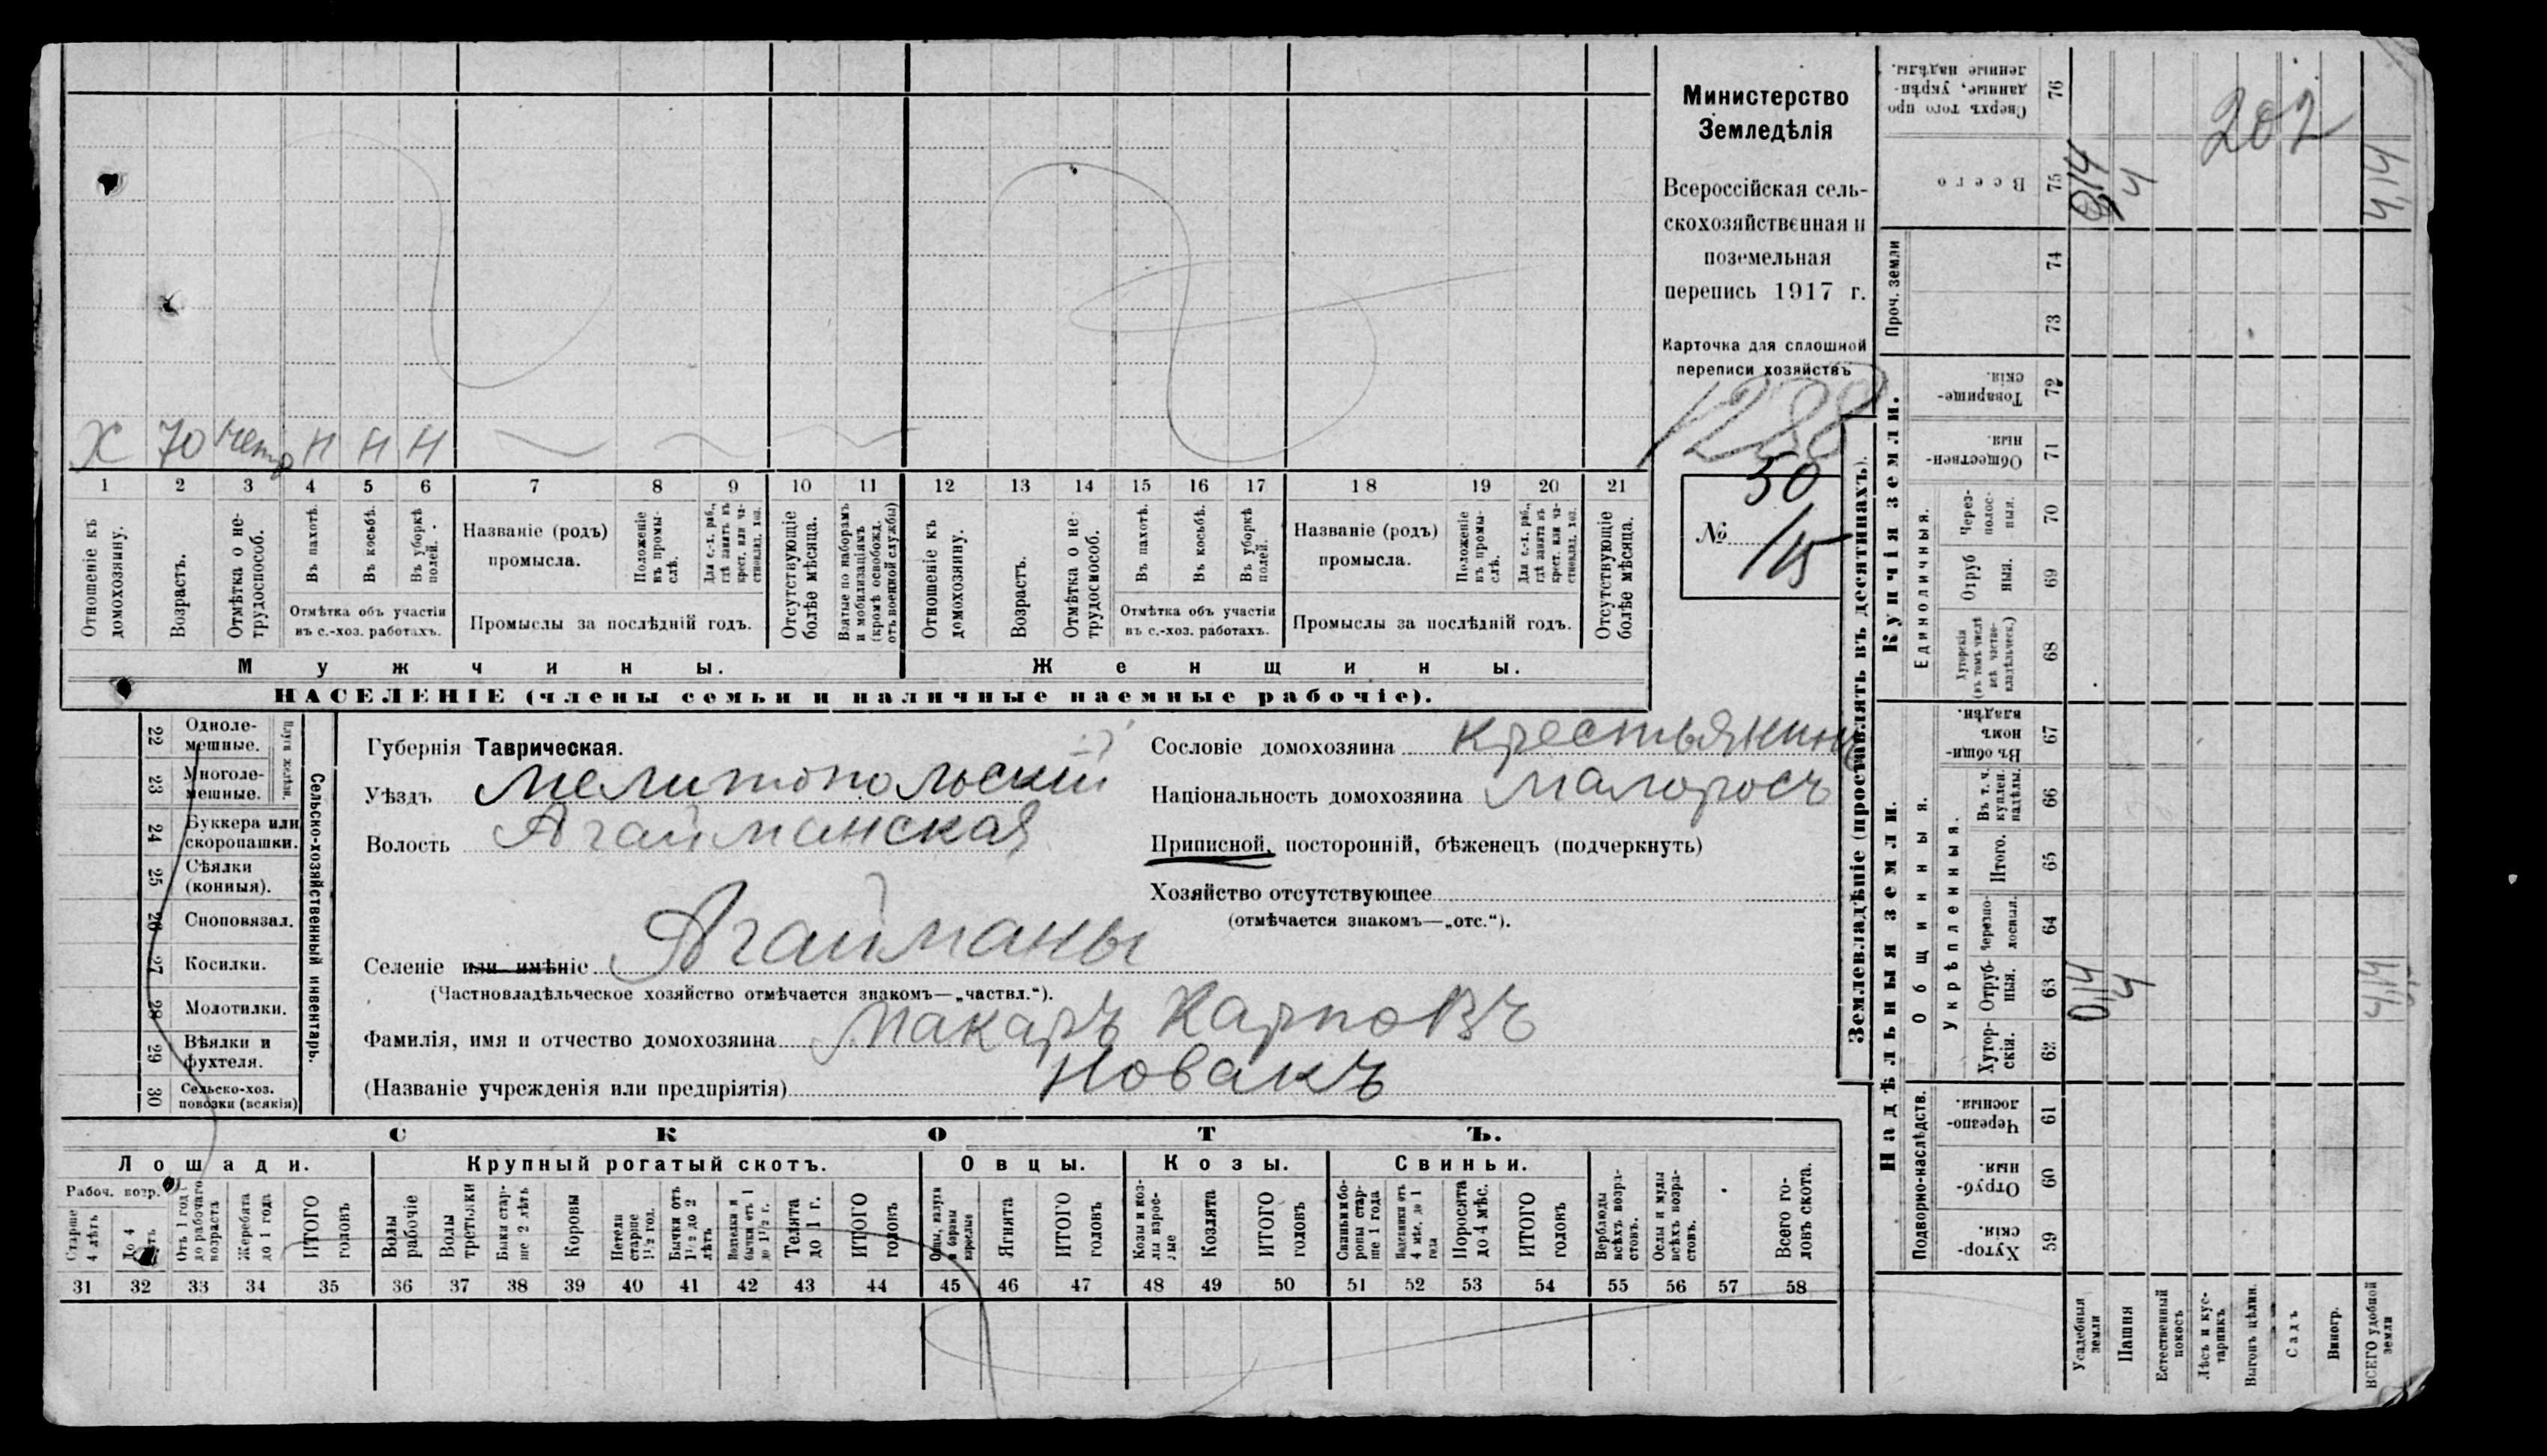 Х 70 нетр Н Н Н
1 2 3 4 5 6 7 8 9 10 11 12 13 14 15 16 17 18 19 20 21
Отношеніе къ домохозяину.
Возрастъ.
Отмѣтка о не-трудоспособ.
Въ пахотѣ.
Въ косьбѣ.
Въ уборкѣ полей.
Отмѣтка объ участіи
въ с.-хоз. работахъ.
Названіе (родъ)
промысла.
Положеніе въ промы-слѣ.
Для с.-х. раб., гдѣ занятъ въ крест. или ча-стновлад. хоз.
Промыслы за послѣдній годъ.
Отсутствующіе болѣе мѣсяца.
Взятые по наборамъ и мобилизаціямъ (кромѣ освобожд. отъ военной службы)
Отношеніе къ домохозяину.
Возрастъ.
Отмѣтка о не-трудоспособ.
Въ пахотѣ.
Въ косьбѣ.
Въ уборкѣ полей.
Отмѣтка объ участіи
въ с.-хоз. работахъ.
Названіе (родъ)
промысла.
Положеніе въ промы-слѣ.
Для с.-х. раб., гдѣ занятъ въ крест. или ча-стновлад. хоз.
Промыслы за послѣдній годъ.
Отсутствующіе болѣе мѣсяца.
Мужчины.
Женщины.
НАСЕЛЕНІЕ (члены семьи и наличные наемные рабочіе).
Министерство
Земледѣлія
Всероссійская сель-
скохозяйственная и
поземельная
перепись 1917 г.
Карточка для сплошной
переписи хозяйствъ
1288
50
№
115
22 Одноле-мешные.
23 Многоле-мешные.
Плуги желѣзн.
24 Буккера или скоропашки.
25 Сѣялки (конныя).
26 Сноповязал.
27 Косилки.
28 Молотилки.
29 Вѣялки и фухтеля.
30 Сельско-хоз. повозки (всякія)
Сельско-хозяйственный инвентарь.
Губернія Таврическая.
Уѣздъ Мелитопольскій
Волость Агайманская
Селеніе или имѣніе Агайманы
(Частновладѣльческое хозяйство отмѣчается знакомъ—„частвл.“).
Фамилія, имя и отчество домохозяина Макаръ Карповъ
Новакъ
(Названіе учрежденія или предпріятія)
Сословіе домохозяина крестьянинъ
Національность домохозяина малоросъ
Приписной, посторонній, бѣженецъ (подчеркнуть)
Хозяйство отсутствующее
(отмѣчается знакомъ—„отс.“).
СКОТЪ.
Лошади.
Крупный рогатый скотъ.
Овцы.
Козы.
Свиньи.
Рабоч. возр.
Старше 4 лѣтъ
До 4 лѣтъ
Отъ 1 год до рабочаго возраста
Жеребята до 1 года
ИТОГО головъ
Волы рабочіе
Волы третьяки
Быки стар-ше 2 лѣтъ
Коровы
Нетели старше 1½ год.
Бычки отъ 1½ до 2 лѣтъ
Подтелки и бычки отъ 1 до 1½ г.
Телята до 1 г.
ИТОГО головъ
Овцы, валухи и бараны взрослые
Ягнята
ИТОГО головъ
Козы и коз-лы взрос-лые
Козлята
ИТОГО головъ
Свиньи и бо-ровы стар-ше 1 года
Подсвинки отъ 4 мѣс. до 1 года
Поросята до 4 мѣс.
ИТОГО головъ
Верблюды всѣхъ возра-стовъ.
Ослы и мулы всѣхъ возра-стовъ.
Всего го-ловъ скота.
31 32 33 34 35 36 37 38 39 40 41 42 43 44 45 46 47 48 49 50 51 52 53 54 55 56 57 58
Землевладѣніе (проставлять въ десятинахъ).
Купчія земли.
Надѣльныя земли.
Сверхъ того про-данные, укрѣп-ленные надѣлы. 76
Всего 75
Проч. земли
74
73
Товарище-скія. 72
Обществен-ныя. 71
Единоличныя.
Через-полос-ныя. 70
Отруб ныя. 69
Хуторскія (въ томъ числѣ всѣ частно-владѣльческ.) 68
Общинныя.
Въ общи-номъ владѣн. 67
Укрѣпленныя.
Въ т. ч. куплен. надѣлы. 66
Итого. 65
Черезпо-лосныя. 64
Отруб-ныя. 63
Хутор-скія. 62
Подворно-наслѣдств.
Черезпо-лосныя. 61
Отруб-ныя. 60
Хутор-скія. 59
Усадебныя земли
Пашня
Естественный покосъ
Лѣсъ и кус-тарникъ
Выгонъ цѣлин.
Садъ
Виногр.
ВСЕГО удобной земли
202
0,14
4
4,14
0,14
4
4,14